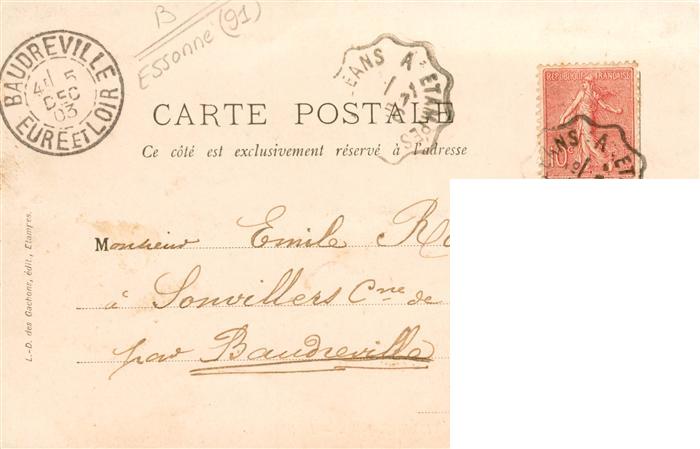 B
Essonne (91)
BAUDREVILLE
5
DEC
03
EURE ET LOIR
EANS A ETAMPES
REPUBLIQUE FRANÇAISE
10c
ANS A ETA
CARTE POSTALE
Ce côté est exclusivement réservé à l'adresse
Monsieur Emile
à Sonvillers Cne de
par Baudreville
L.-D. des Gachons, édit., Etampes.